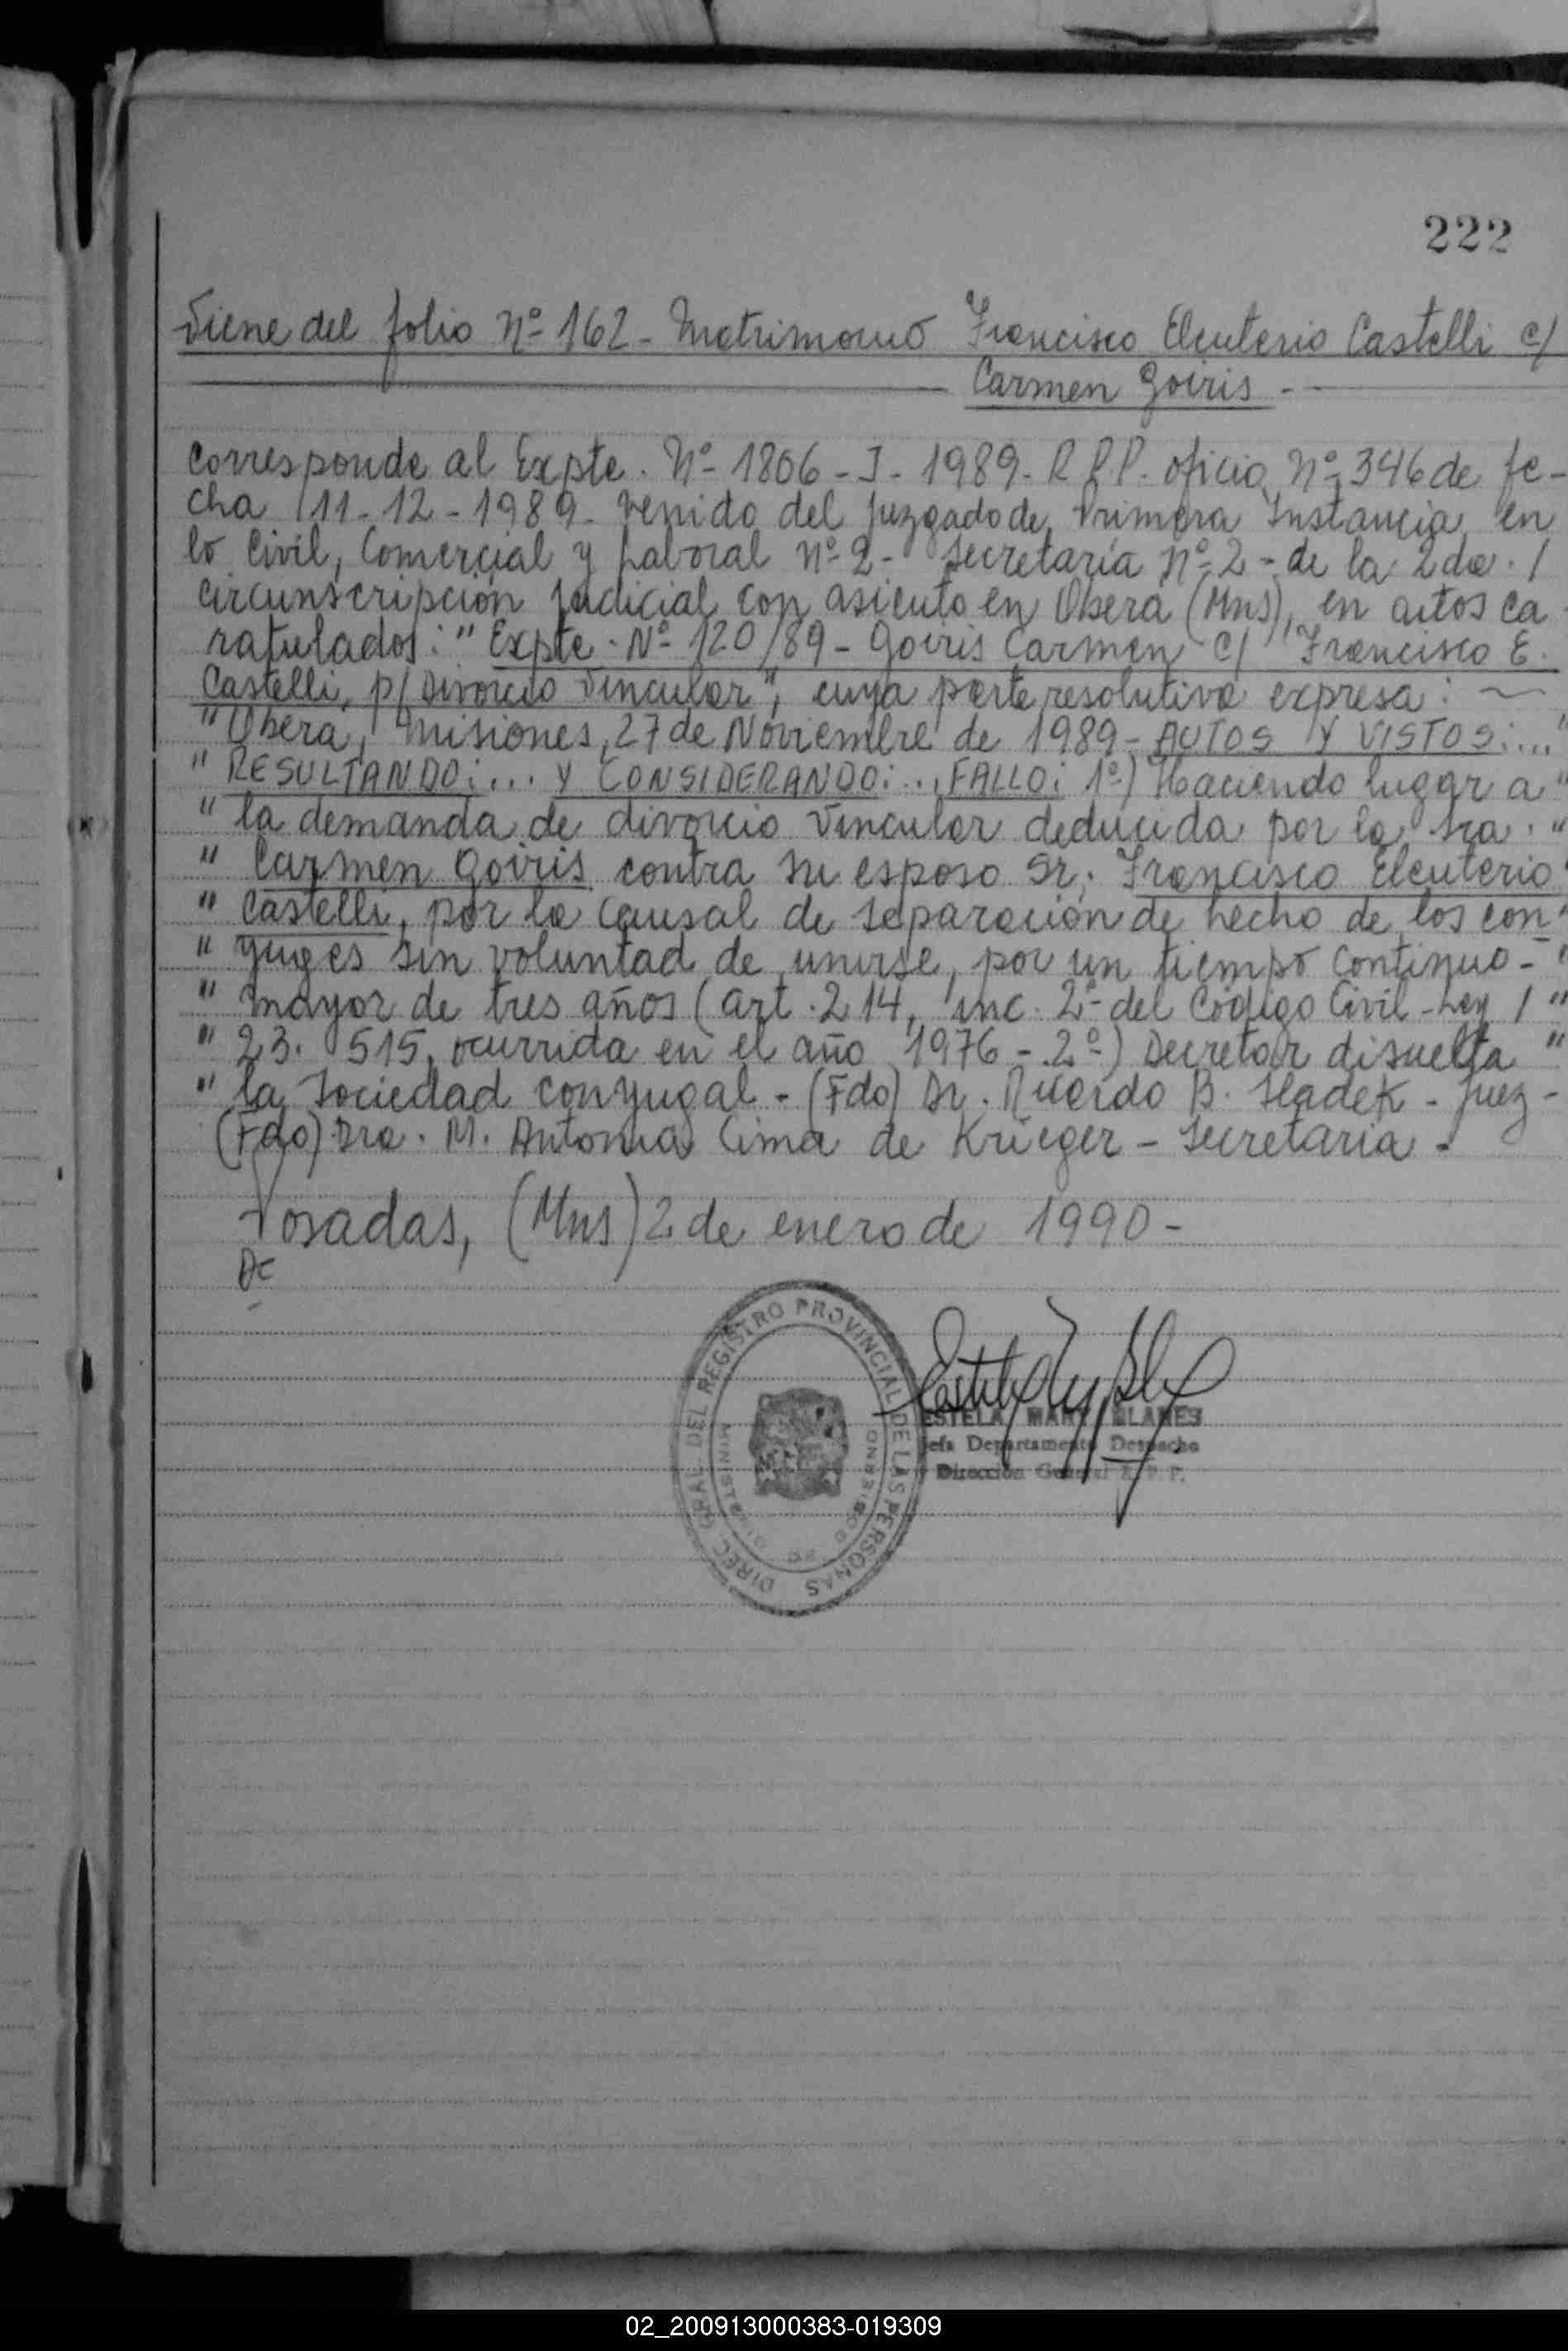 222
Viene del folio Nº 162 - Matrimonio Francisco Eleuterio Castelli c/
Carmen Goiris -
Corresponde al Expte. Nº 1806 - I - 1989 - R.P.P. oficio Nº 346 de fe-
cha 11-12-1989 - venido del Juzgado de Primera Instancia en
lo Civil, Comercial y Laboral Nº 2 - Secretaría Nº 2 - de la 2da. /
circunscripción judicial con asiento en Oberá (Mns), en autos ca
ratulados: " Expte. Nº 120/89 - Goiris Carmen c/ Francisco E.
Castelli, p/ Divorcio Vincular", cuya parte resolutiva expresa:
"Oberá, Misiones, 27 de Noviembre de 1989 - AUTOS Y VISTOS:... "
" RESULTANDO:... Y CONSIDERANDO:... FALLO: 1º) Haciendo lugar a "
" la demanda de divorcio vincular deducida por la Sra. "
" Carmen Goiris contra su esposo Sr. Francisco Eleuterio "
" Castelli, por la causal de separación de hecho de los con "
" yuges sin voluntad de unirse, por un tiempo continuo - "
" mayor de tres años (art. 214, inc. 2º del Código Civil - Ley / "
" 23.515, ocurrida en el año 1976 - 2º) Decretar disuelta "
" la Sociedad conyugal - (Fdo) Dr. Ricardo B. Sladek - Juez -
(Fdo) Dra. M. Antonia Cima de Krieger - Secretaria -
Posadas, (Mns) 2 de enero de 1990 -
DIREC. GRAL. DEL REGISTRO PROVINCIAL DE LAS PERSONAS
MINISTERIO DE GOBIERNO
ESTELA MARY BLANES
Jefa Departamento Despacho
Dirección General R. P. P.
02_200913000383-019309